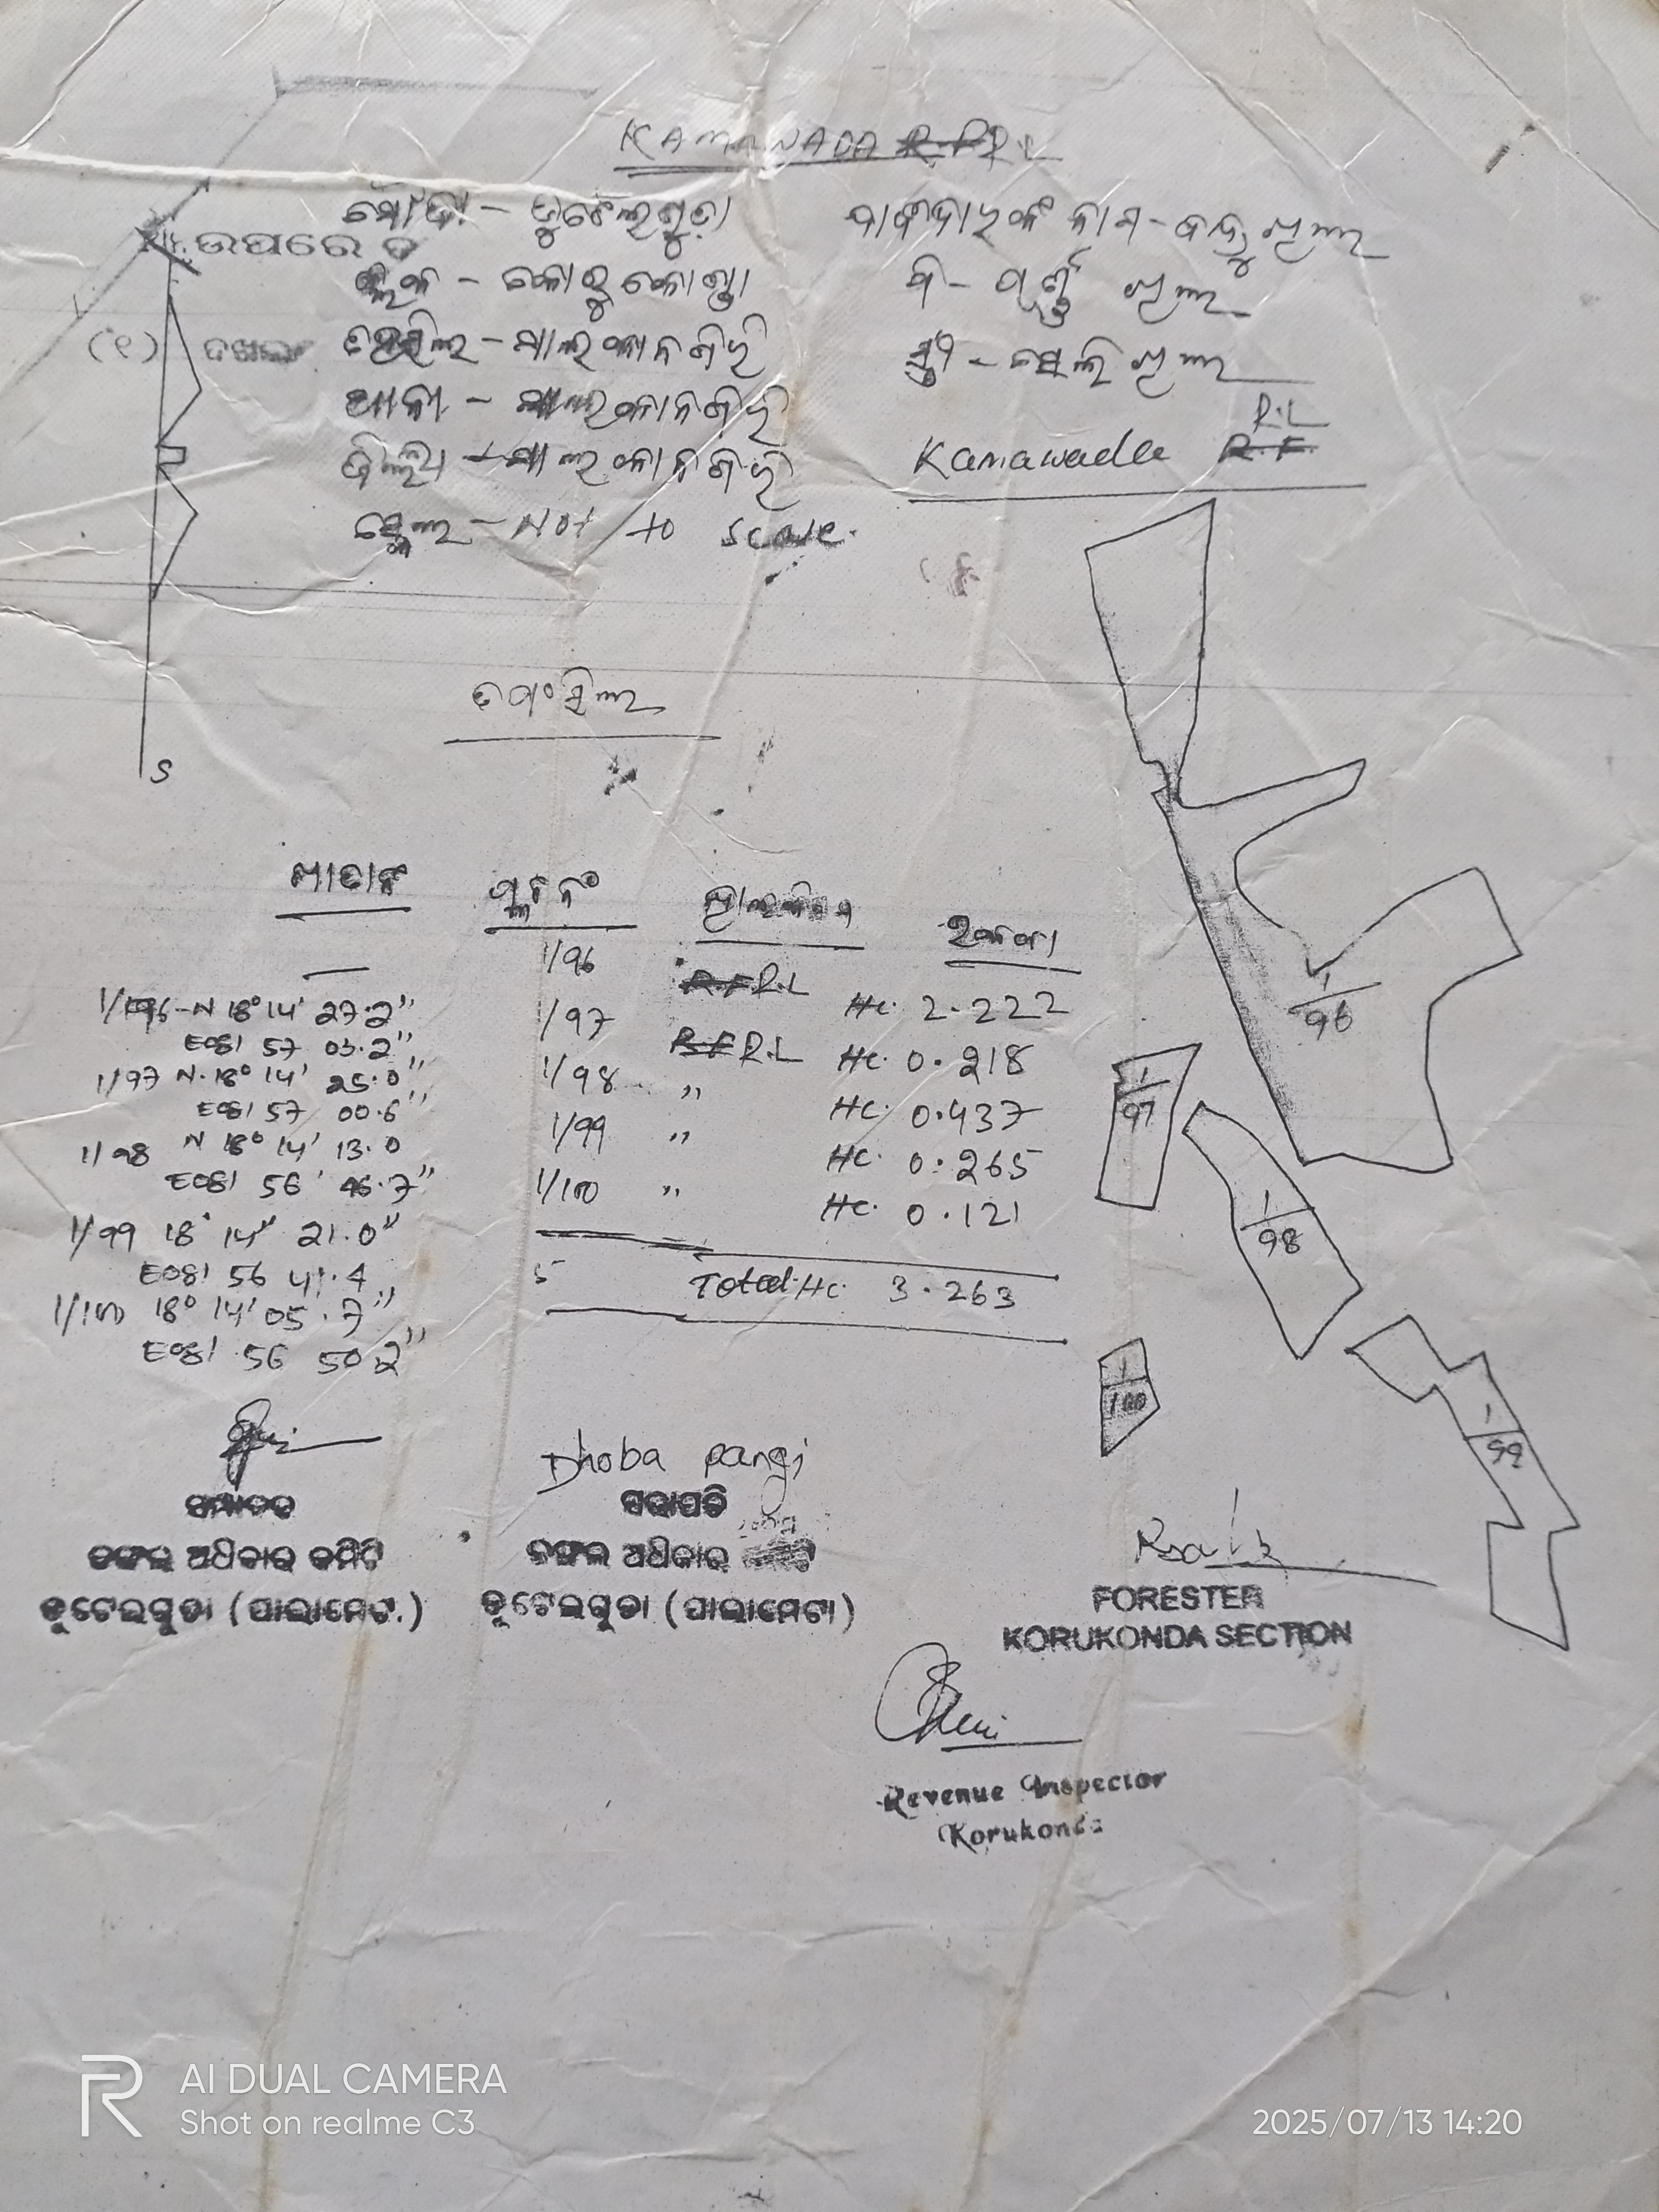 KAMAWADA R.F R.L
ମୌଜା - ଡୁଟେଲଗୁଡ଼ା
ଦାବୀଦାରଙ୍କ ନାମ - ବନ୍ଧୁ ଖିଲ
ଉପରେ
ବ୍ଲକ - କୋରୁକୋଣ୍ଡା
ପି - ଖିଲ
(୧) ଦଖଲ
ତହସିଲ - ମାଲକାନଗିରି
ସ୍ତ୍ରୀ - ଖିଲ
ଥାନା - ମାଲକାନଗିରି
ଜିଲ୍ଲା - ମାଲକାନଗିରି
R.L
Kamawada R.F.
ସ୍କେଲ - Not to scale.
ତପସିଲ
S
ଖାତାନଂ ପ୍ଲଟ ନଂ ରକବା
— 1/96 R.F R.L Hc. 2.222
1/97 R.F R.L Hc. 0.218
1/98 ,, Hc. 0.437
1/99 ,, Hc. 0.265
1/100 ,, Hc. 0.121
5 Total Hc. 3.263
1/96 - N 18° 14' 27.2"
E081 57 03.2"
1/97 N. 18° 14' 25.0"
E081 57 00.6"
1/98 N 18° 14' 13.0
E081 56' 46.7"
1/99 18° 14" 21.0"
E081 56 41.4
1/100 18° 14' 05.7"
E081 56 50.2"
1/96
1/97
1/98
1/100
1/99
Dhoba pangi
ସମ୍ପାଦକ
ସଭାପତି
ଜଙ୍ଗଲ ଅଧିକାର କମିଟି
ଜଙ୍ଗଲ ଅଧିକାର କମିଟି
ଡୁଟେଲଗୁଡା (ପାଲାମେଟା)
ଡୁଟେଲଗୁଡା (ପାଲାମେଟା)
FORESTER
KORUKONDA SECTION
Revenue Inspector
Korukonda
AI DUAL CAMERA
Shot on realme C3
2025/07/13 14:20